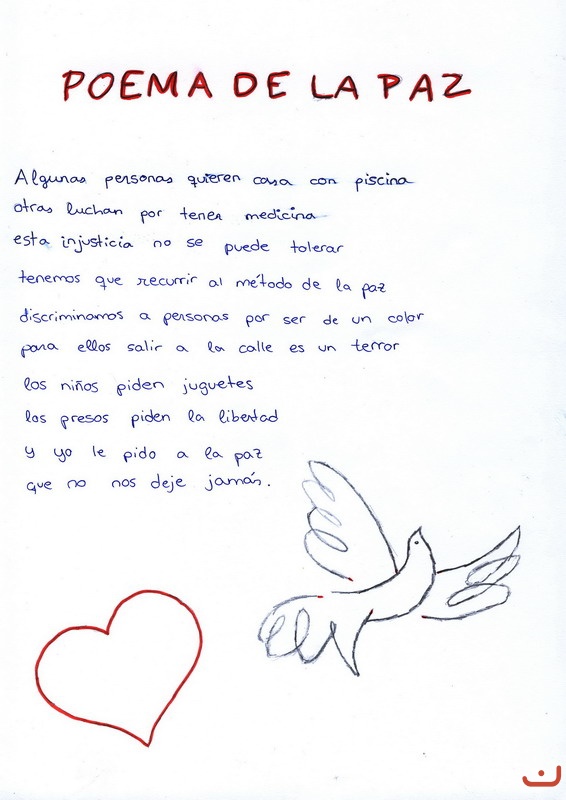 POEMA DE LA PAZ
Algunas personas quieren casa con piscina
otras luchan por tener medicina
esta injusticia no se puede tolerar
tenemos que recurrir al método de la paz
discriminamos a personas por ser de un color
para ellos salir a la calle es un terror
los niños piden juguetes
los presos piden la libertad
y yo le pido a la paz
que no nos deje jamás.